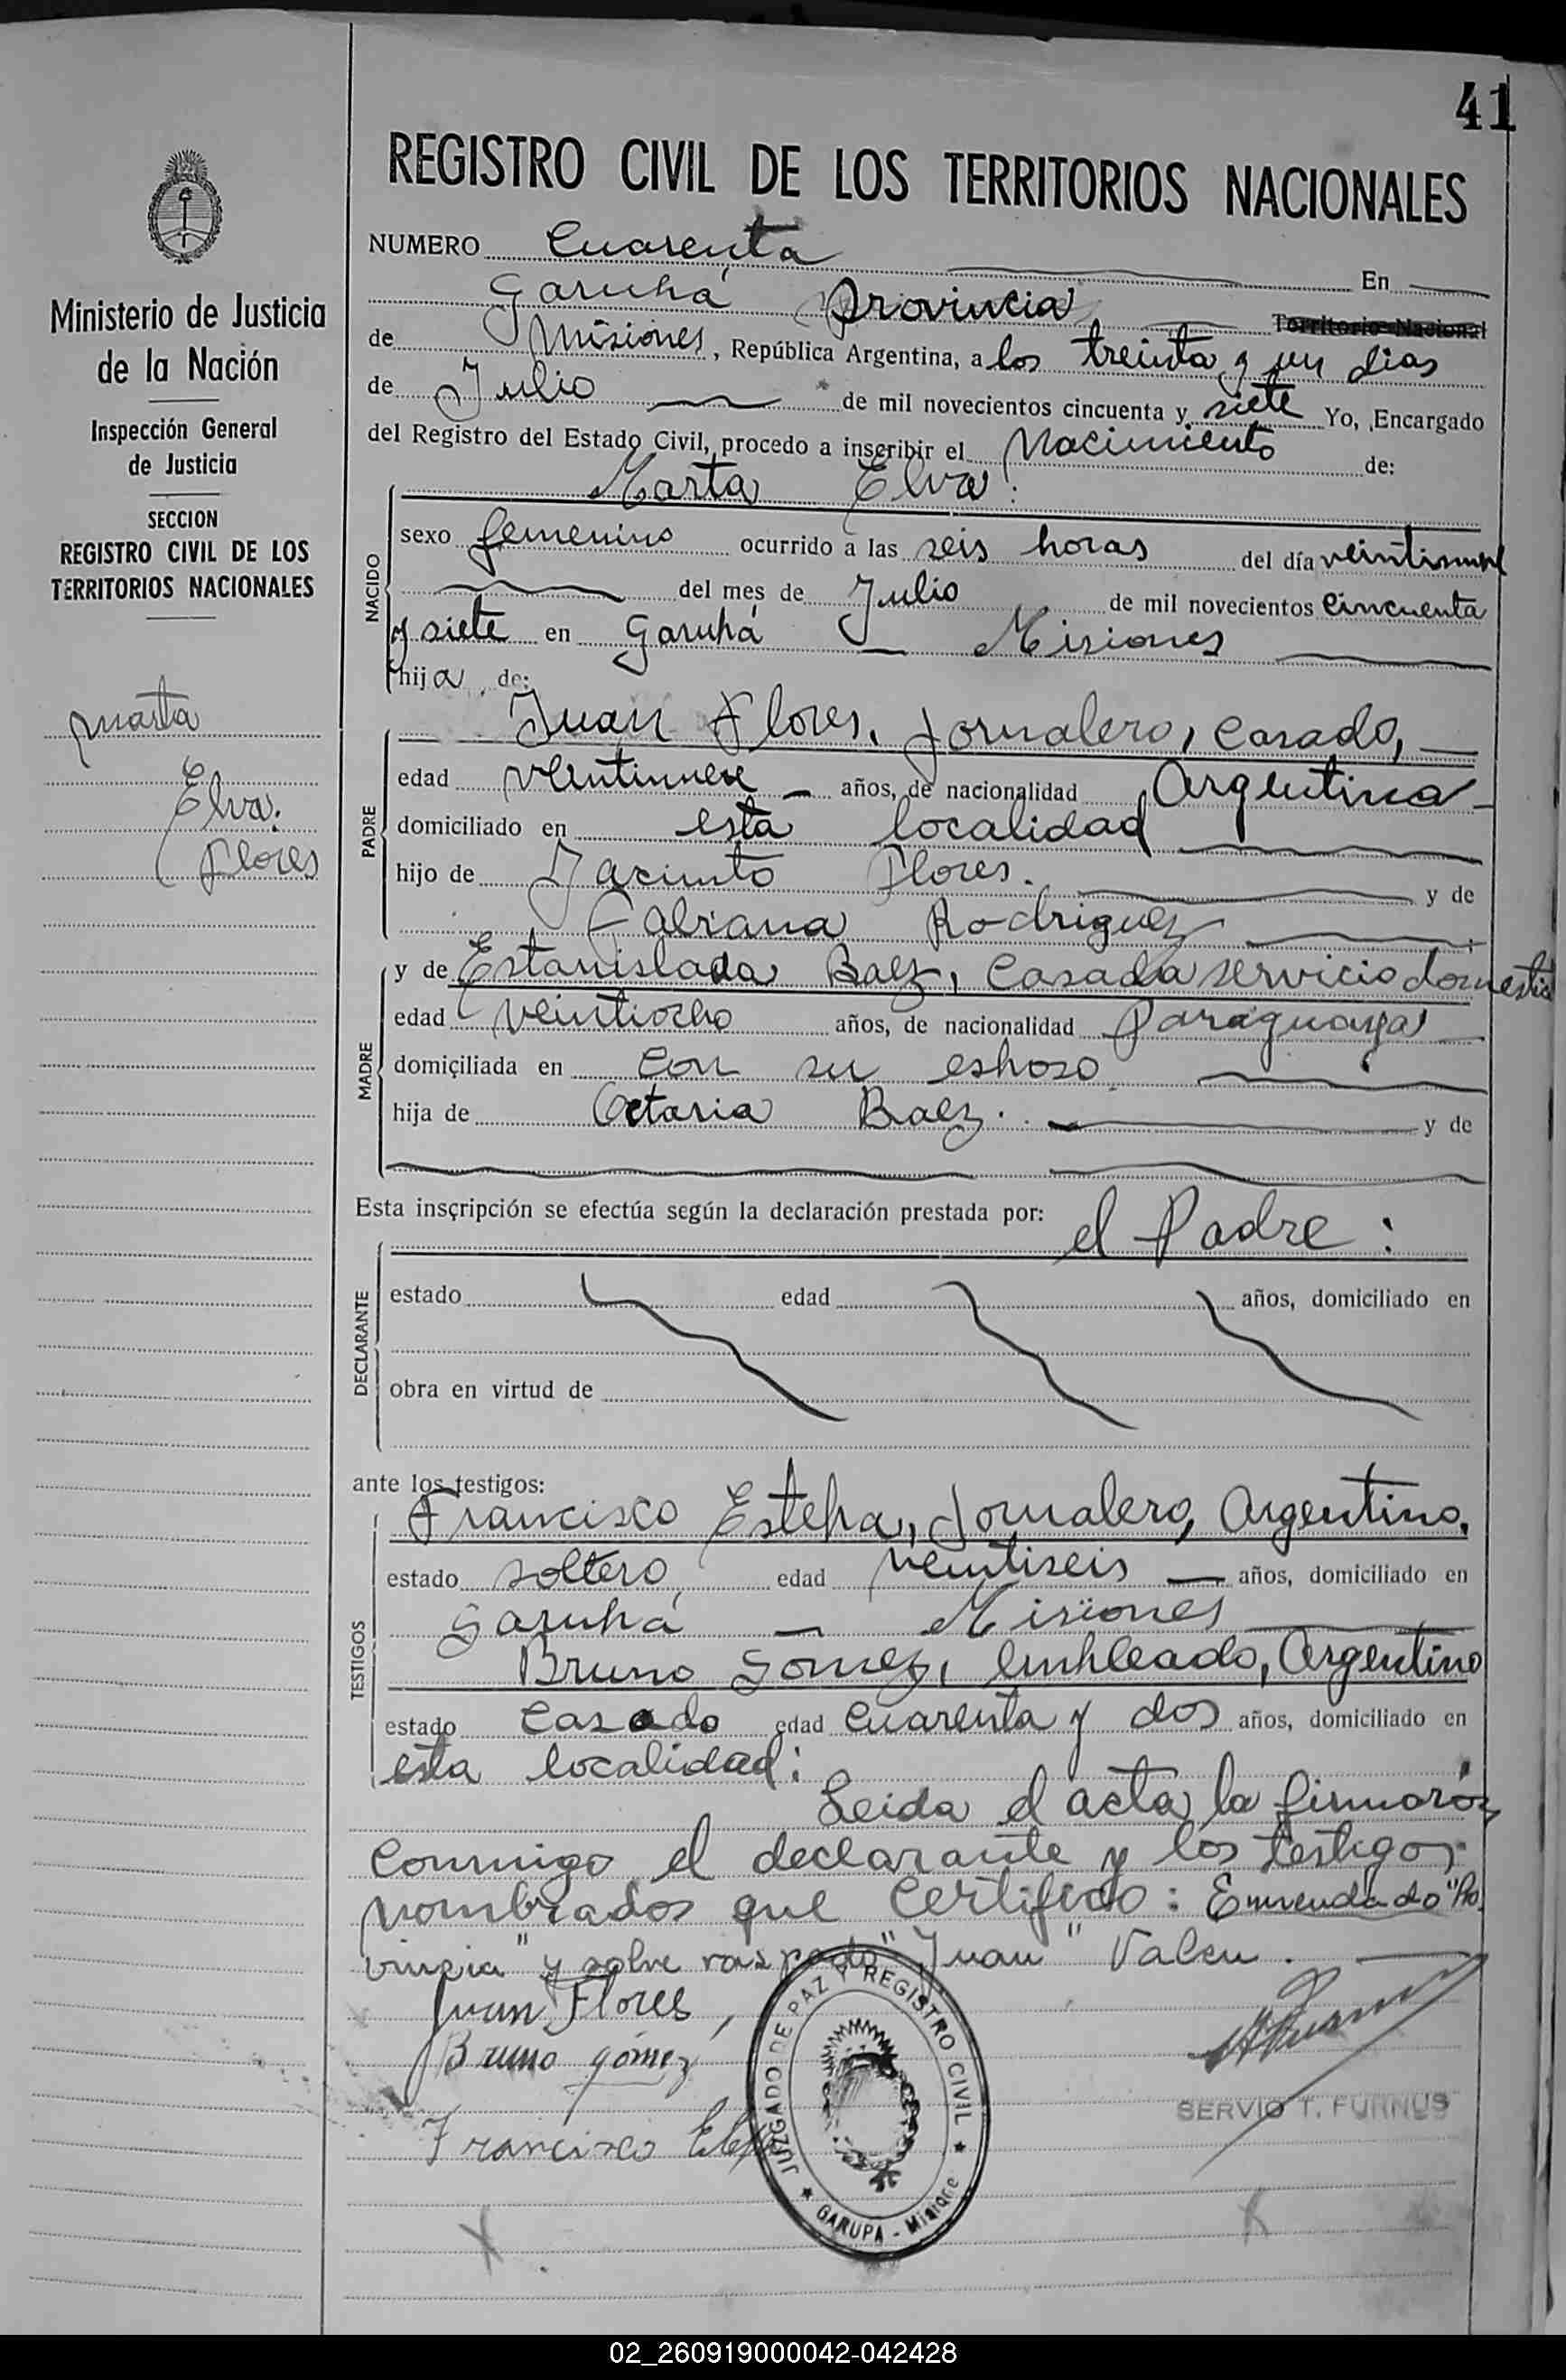 41
REGISTRO CIVIL DE LOS TERRITORIOS NACIONALES
NUMERO Cuarenta En
Garupá Provincia Territorio Nacional
de Misiones, República Argentina, a los treinta y un dias
de Julio de mil novecientos cincuenta y siete Yo, Encargado
del Registro del Estado Civil, procedo a inscribir el Nacimiento de:
Marta Elva.
NACIDO
sexo femenino ocurrido a las seis horas del día veintinueve
del mes de Julio de mil novecientos cincuenta
y siete en Garupá Misiones
hija de:
PADRE
Juan Flores, Jornalero, casado,
edad veintinueve años, de nacionalidad Argentina
domiciliado en esta localidad
hijo de Jacinto Flores. y de
Fabiana Rodriguez
MADRE
y de Estanislada Baez, casada servicio domestico
edad veintiocho años, de nacionalidad Paraguaya
domiciliada en con su esposo
hija de Octaria Baez. y de
Esta inscripción se efectúa según la declaración prestada por: el Padre:
DECLARANTE
estado edad años, domiciliado en
obra en virtud de
ante los testigos:
TESTIGOS
Francisco Estepa, Jornalero, Argentino,
estado soltero, edad veintiseis años, domiciliado en
Garupá Misiones
Bruno Gomez, empleado, Argentino
estado casado edad cuarenta y dos años, domiciliado en
esta localidad:
Leida el acta, la firmarón
conmigo el declarante y los testigos
nombrados que certifico: Enmendado "Pro
vincia" y sobre raspado "Juan" Valen.
Juan Flores,
Bruno gómez
Francisco
SERVIO T. FURNUS
JUZGADO DE PAZ Y REGISTRO CIVIL
GARUPA - Misiones
Ministerio de Justicia
de la Nación
Inspección General
de Justicia
SECCION
REGISTRO CIVIL DE LOS
TERRITORIOS NACIONALES
Marta
Elva.
Flores
02_260919000042-042428